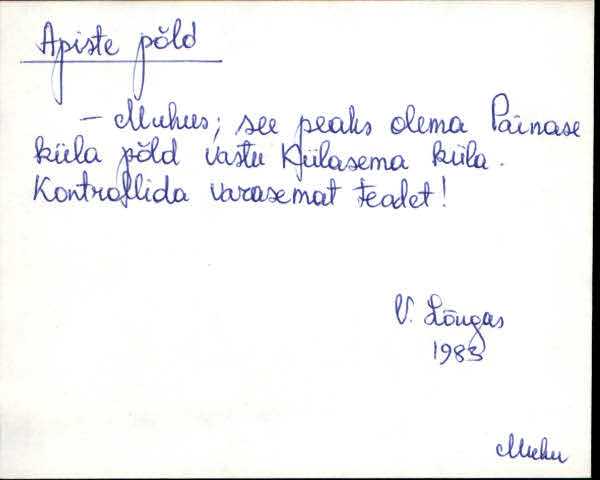 Apiste põld
– Muhus; see peaks olema Pärnase
küla põld vastu Külasema küla.
Kontrollida varasemat teadet!
V. Lõugas
1983
Muhu